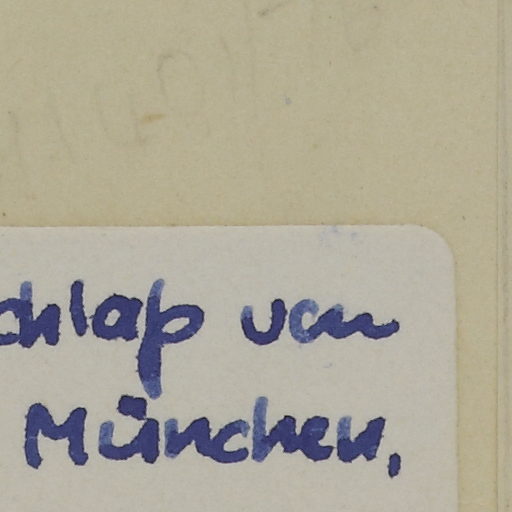 chlap von
München,